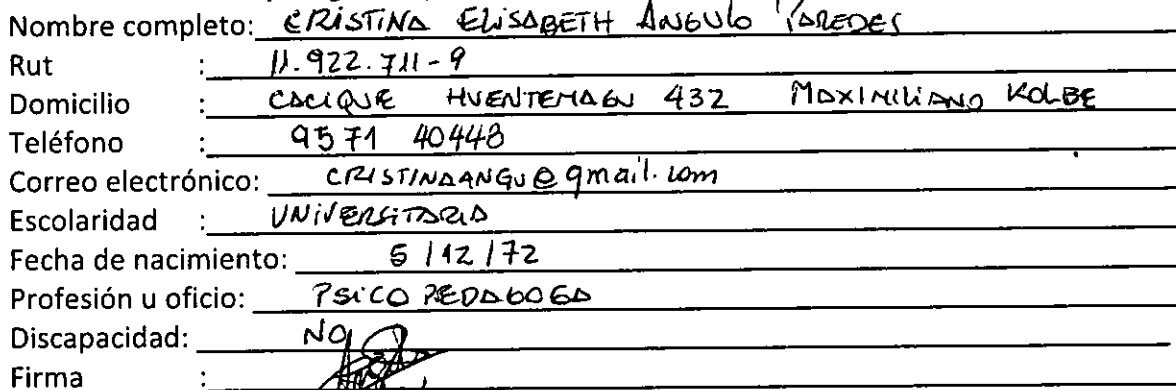 Nombre completo: CRISTINA ELISABETH ANGULO PAREDES
Rut : 11.922.711-9
Domicilio : CACIQUE HUENTEMAGU 432 MAXIMILIANO KOLBE
Teléfono : 9571 40448
Correo electrónico: CRISTINAANGU@gmail.com
Escolaridad : UNIVERSITARIA
Fecha de nacimiento: 5/12/72
Profesión u oficio: PSICO PEDAGOGA
Discapacidad: NO
Firma :